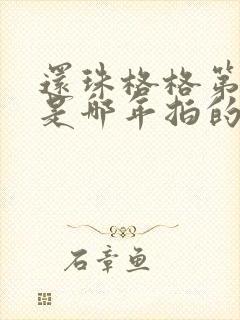 還珠格格第
是哪年拍的
石章鱼